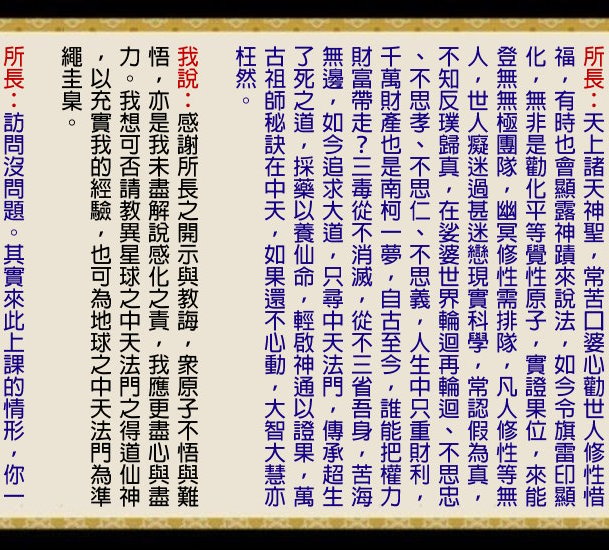 所長：天上諸天神聖，常苦口婆心勸世人修性惜
福，有時也會顯露神蹟來說法，如今令旗雷印顯
化，無非是勸化平等覺性原子，實證果位，來能
登無無極團隊，幽冥修性需排隊，凡人修性等無
人，世人癡迷過甚迷戀現實科學，常認假為真，
不知反璞歸真，在娑婆世界輪迴再輪迴、不思忠
、不思孝、不思仁、不思義，人生中只重財利，
千萬財產也是南柯一夢，自古至今，誰能把權力
財富帶走？三毒從不消滅，從不三省吾身，苦海
無邊，如今追求大道，只尋中天法門，傳承超生
了死之道，採藥以養仙命，輕啟神通以證果，萬
古祖師秘訣在中天，如果還不心動，大智大慧亦
枉然。
我說：感謝所長之開示與教誨，衆原子不悟與難
悟，亦是我未盡解說感化之責，我應更盡心與盡
力。我想可否請教異星球之中天法門之得道仙神
，以充實我的經驗，也可為地球之中天法門為準
繩圭臬。
所長：訪問沒問題。其實來此上課的情形，你一